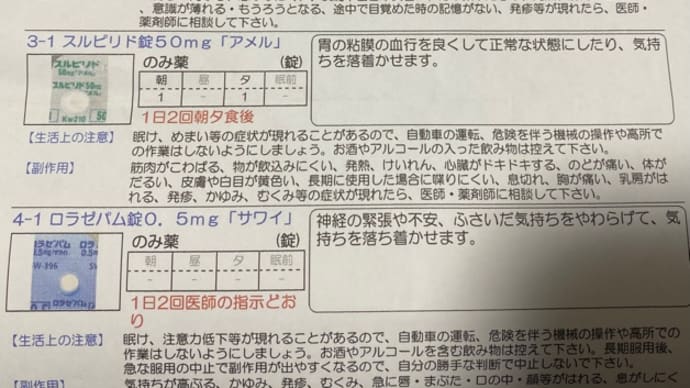 、意識が薄れる・もうろうとなる、途中で目覚めた時の記憶がない、発疹等が現れたら、医師・
薬剤師に相談して下さい。
3-1 スルピリド錠50mg「アメル」
スルピリド
50mg「アメル」
スルピリド
50mg「アメル」
Kw210 50
のみ薬 (錠)
朝 昼 夕 眠前
1 - 1 -
1日2回朝夕食後
胃の粘膜の血行を良くして正常な状態にしたり、気持
ちを落着かせます。
【生活上の注意】 眠け、めまい等の症状が現れることがあるので、自動車の運転、危険を伴う機械の操作や高所で
の作業はしないようにしましょう。お酒やアルコールの入った飲み物は控えて下さい。
【副作用】 筋肉がこわばる、物が飲込みにくい、発熱、けいれん、心臓がドキドキする、のどが痛い、体が
だるい、皮膚や白目が黄色い、長期に使用した場合に喋りにくい、息切れ、胸が痛い、乳房がは
れる、発疹、かゆみ、むくみ等の症状が現れたら、医師・薬剤師に相談して下さい。
4-1 ロラゼパム錠0．5mg「サワイ」
ロラゼパム ロラ
0.5m
W-396 SW
ロラゼパム
のみ薬 (錠)
朝 昼 夕 眠前
- - - -
1日2回医師の指示どお
り
神経の緊張や不安、ふさいだ気持ちをやわらげて、気
持ちを落ち着かせます。
【生活上の注意】 眠け、注意力低下等が現れることがあるので、自動車の運転、危険を伴う機械の操作や高所での
作業はしないようにしましょう。お酒やアルコールを含む飲み物は控えて下さい。長期服用後、
急な服用の中止で副作用が出やすくなるので、自分の勝手な判断で中止しないで下さい。
【副作用】 気持ちが高ぶる、かゆみ、発疹、むくみ、急に唇・まぶた・口の中・顔等がはれる、息がしにく